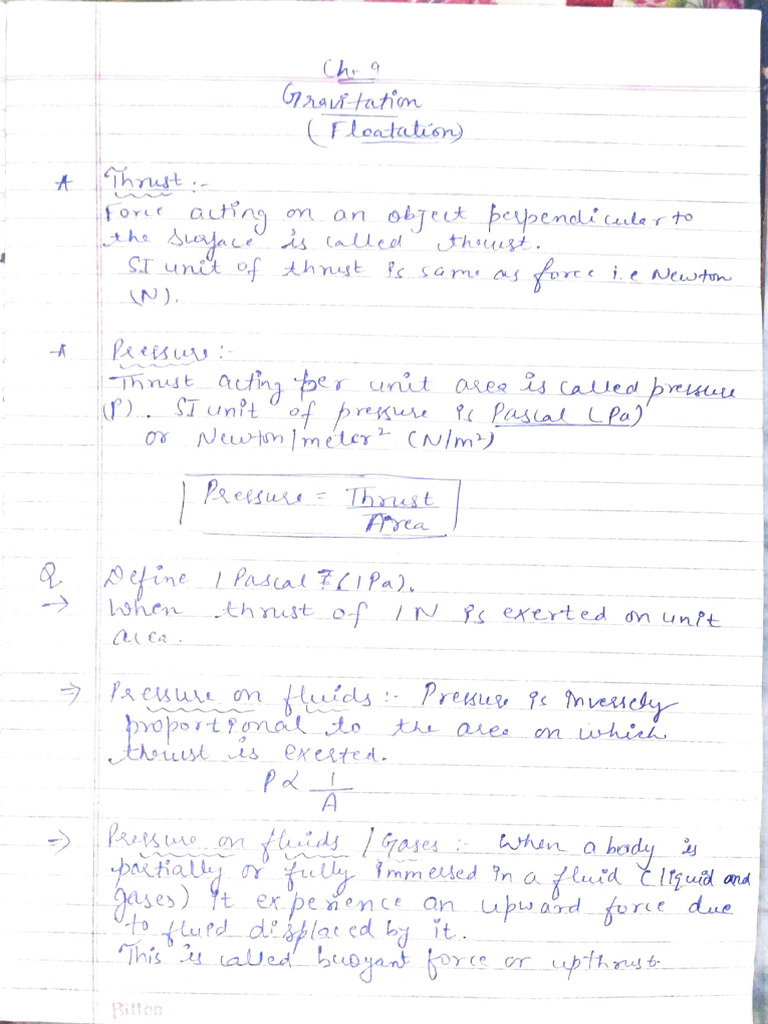 Ch-9
Gravitation
(Floatation)
Thrust :-
Force acting on an object perpendicular to
the surface is called thrust.
SI unit of thrust is same as force i.e Newton
(N).
Pressure :-
Thrust acting per unit area is called pressure
(P). SI unit of pressure is Pascal (Pa)
or Newton/meter² (N/m²)
Pressure = Thrust
Area
Q. Define 1 Pascal ? (1Pa).
→ When thrust of 1N is exerted on unit
area.
⇒ Pressure on fluids :- Pressure is inversely
proportional to the area on which
thrust is exerted.
P ∝ 1
A
⇒ Pressure on fluids / Gases :- When a body is
partially or fully immersed in a fluid (liquid and
gases) it experience an upward force due
to fluid displaced by it.
This is called buoyant force or upthrust.
Bitten